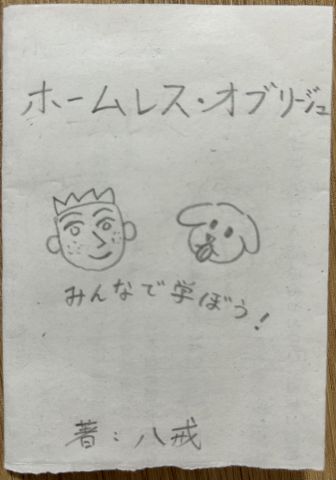 ホームレス・オブリージュ
みんなで学ぼう!
著:八戒